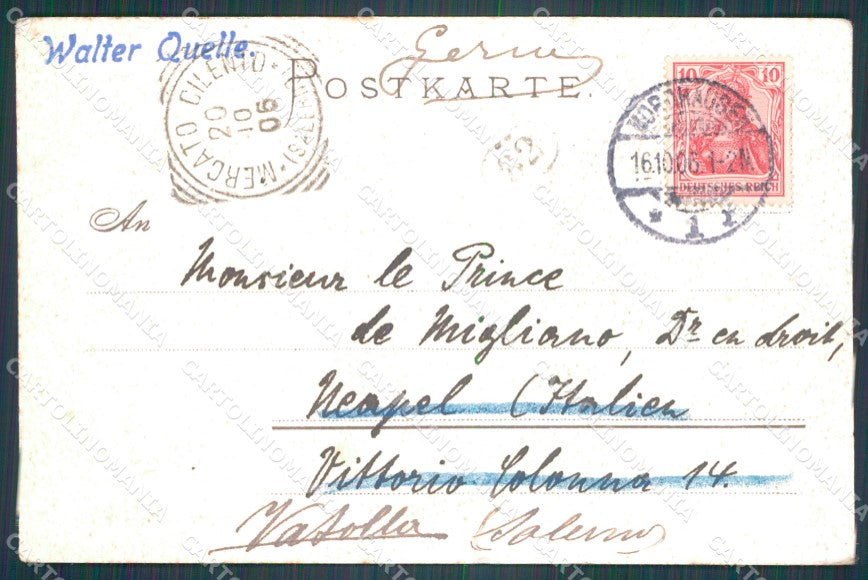 Walter Quelle.
POSTKARTE.
10 10
DEUTSCHES REICH
NORDHAUSEN
16.10.06.1-2N.
* 1 I
MERCATO CILENTO
(SALERNO)
20
10
06
An
Monsieur le Prince
de Migliano, Dr en droit,
Neapel (Italien
Vittorio Colonna 14.
Vatolla (Salerno)
CARTOLINOMANIA